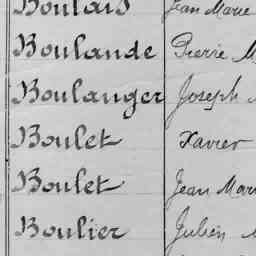 Boulais Jean Marie
Boulande Pierre M
Boulanger Joseph
Boulet Xavier
Boulet Jean Mari
Boulier Julien